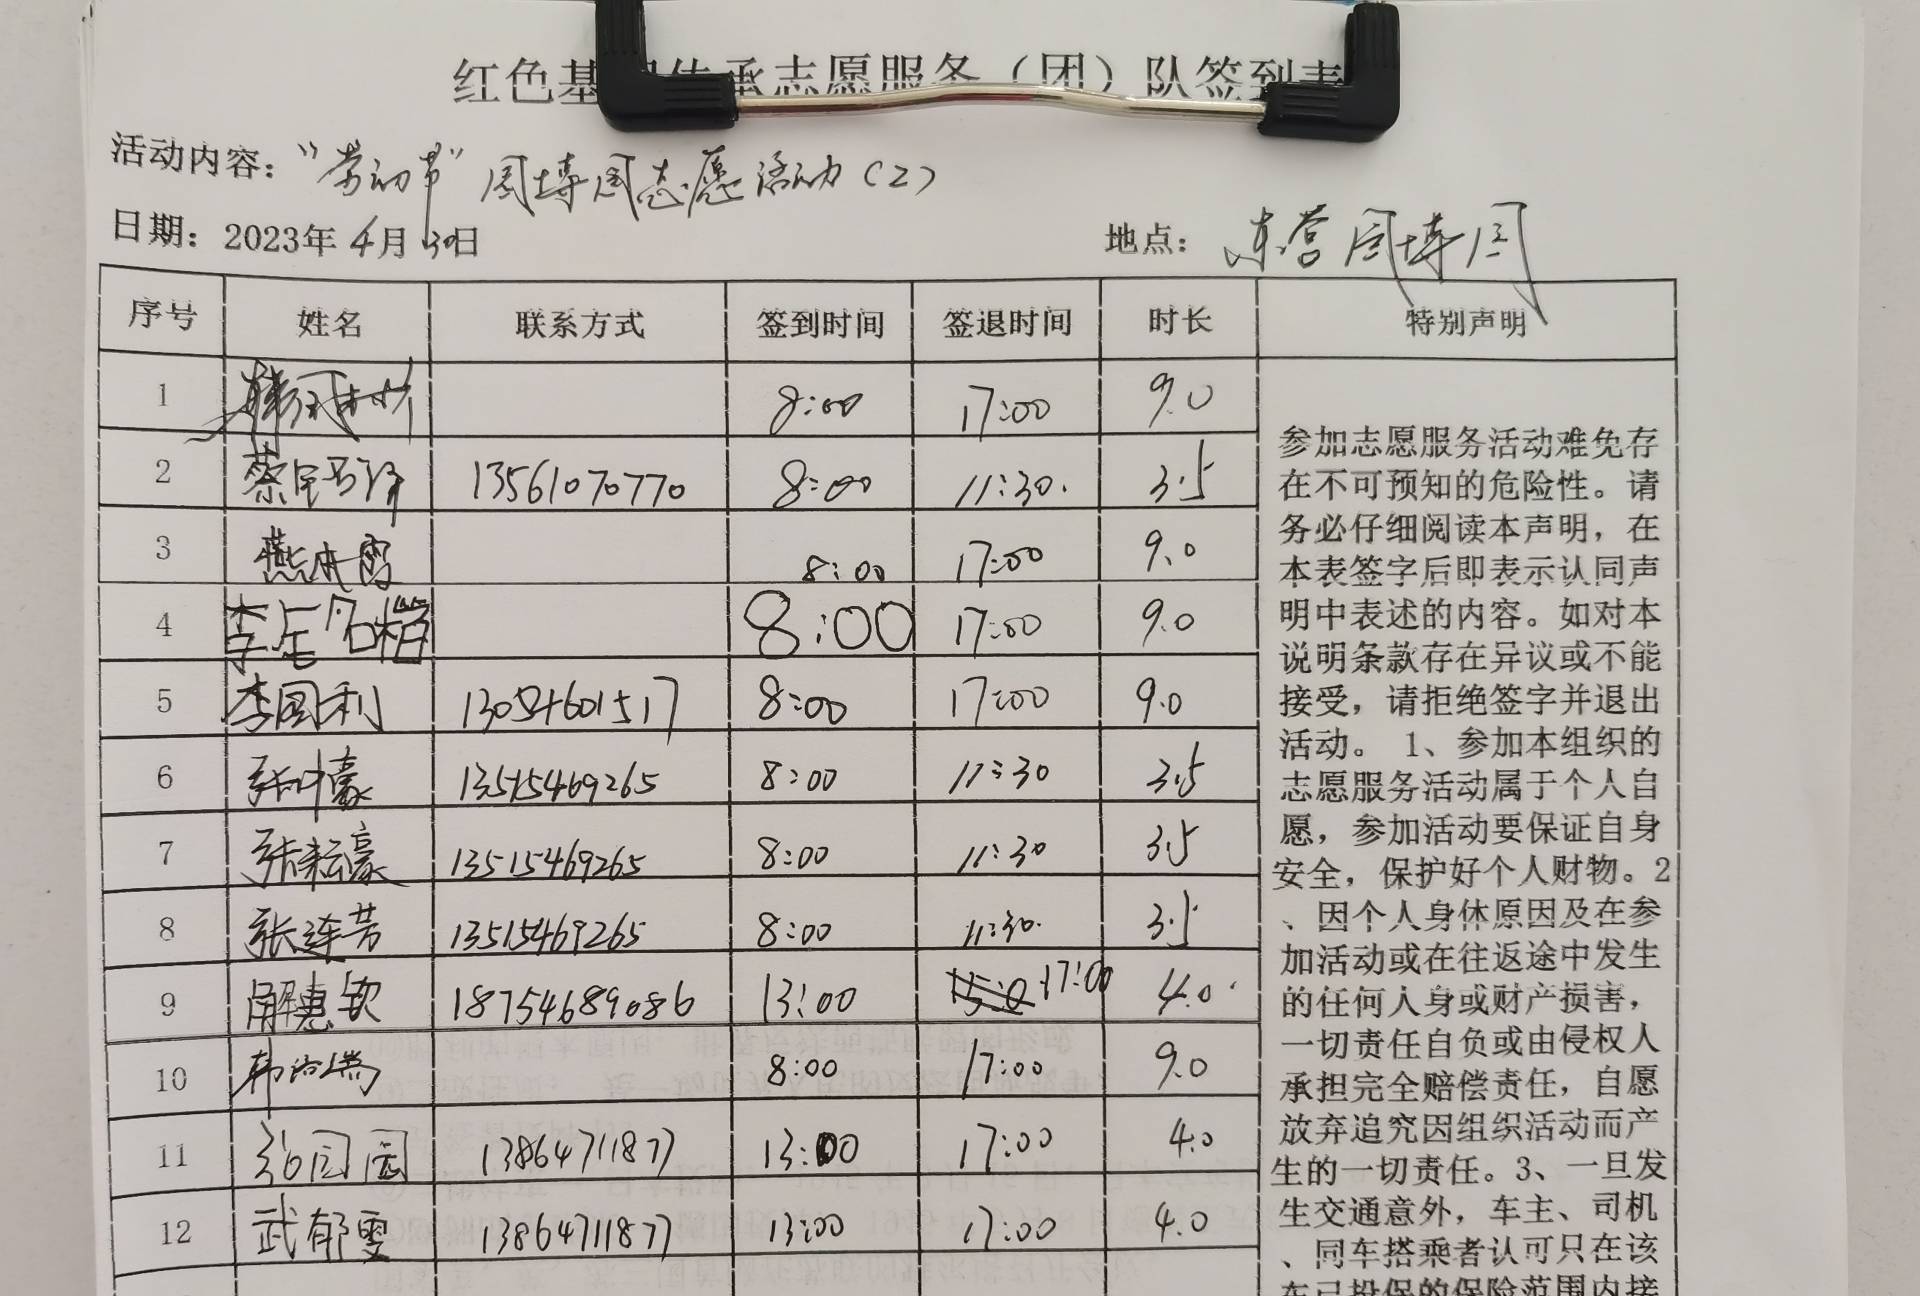 红色基 传承志愿服务（团）队签到表
活动内容：“劳动节”园博园志愿活动（2）
日期：2023年4月30日 地点：东营园博园
序号 姓名 联系方式 签到时间 签退时间 时长 特别声明
1 8:00 17:00 9.0
2 13561070770 8:00 11:30. 3.5
3 8:00 17:00 9.0
4 8:00 17:00 9.0
5 李国利 13054601517 8:00 17:00 9.0
6 13515469265 8:00 11:30 3.5
7 张耘豪 13515469265 8:00 11:30 3.5
8 张连芳 13515469265 8:00 11:30. 3.5
9 解惠钦 18754689086 13:00 17:00 4.0
10 8:00 17:00 9.0
11 13864711877 13:00 17:00 4.0
12 武郁雯 13864711877 13:00 17:00 4.0
参加志愿服务活动难免存
在不可预知的危险性。请
务必仔细阅读本声明，在
本表签字后即表示认同声
明中表述的内容。如对本
说明条款存在异议或不能
接受，请拒绝签字并退出
活动。 1、参加本组织的
志愿服务活动属于个人自
愿，参加活动要保证自身
安全，保护好个人财物。2
、因个人身体原因及在参
加活动或在往返途中发生
的任何人身或财产损害，
一切责任自负或由侵权人
承担完全赔偿责任，自愿
放弃追究因组织活动而产
生的一切责任。3、一旦发
生交通意外，车主、司机
、同车搭乘者认可只在该
车已投保的保险范围内接